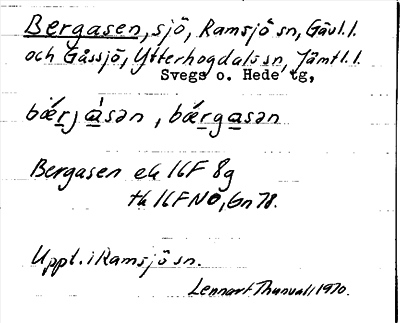 Bergasen, sjö, Ramsjö sn, Gävl. l.
och Gåssjö, Ytterhogdals sn, Jämtl. l.
Svegs o. Hede tg,
bǽrja̍sən, bǽrgasən
Bergasen ek 16F 8g
tk 16F NO, Gn 78.
Uppt. i Ramsjö sn.
Lennart Thunvall 1970.